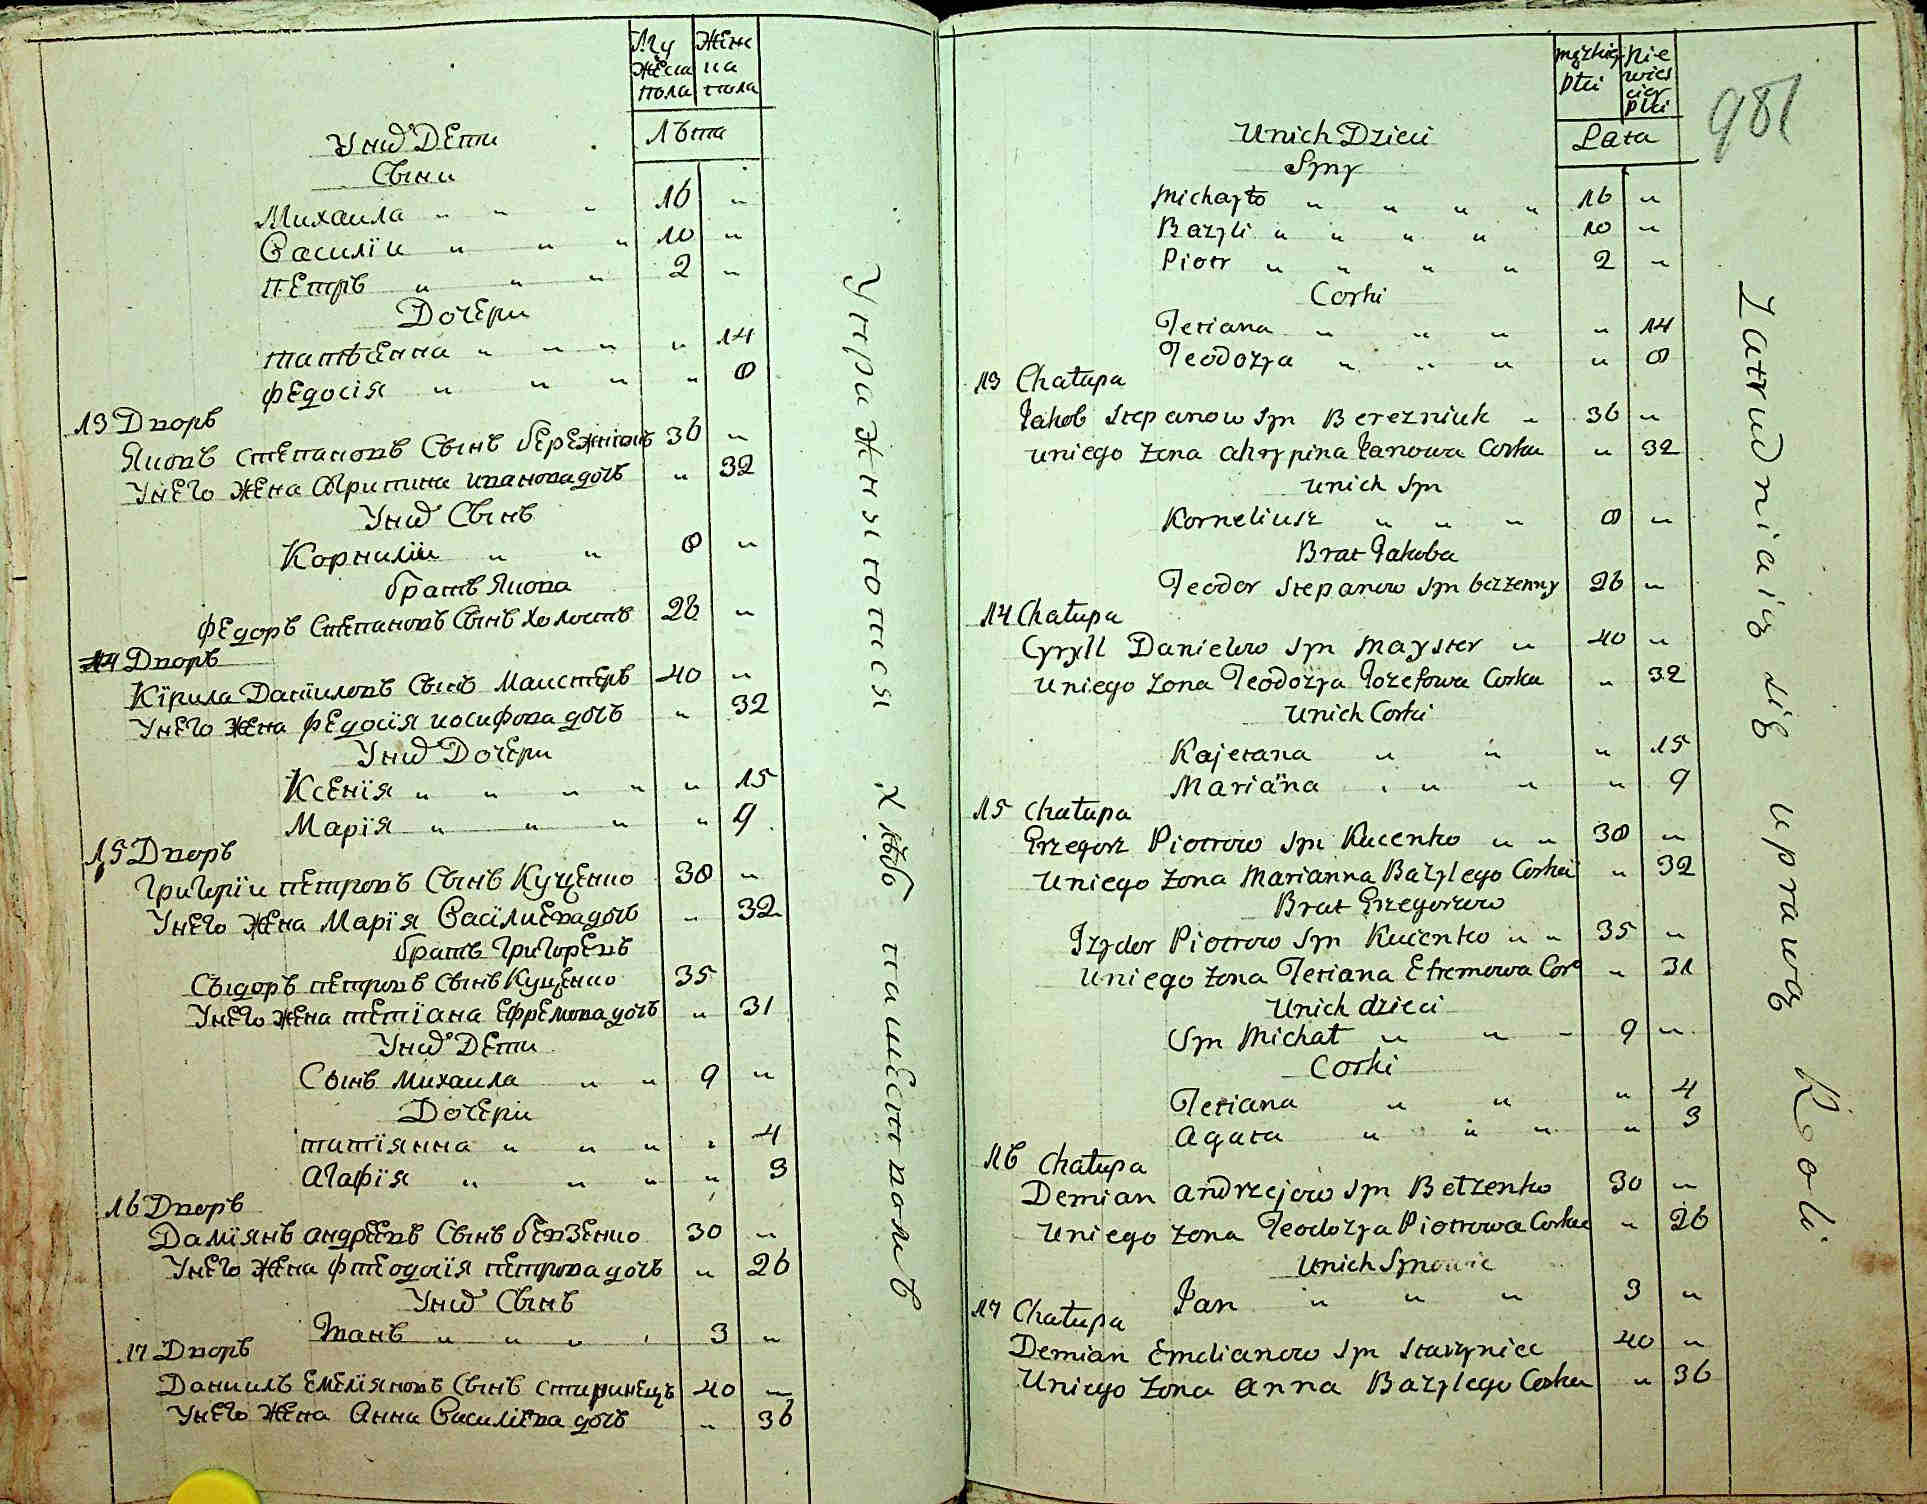 Му жеска пола
Женс ка пола
Лѣта
У них Дети
Сыни
Михаила " " " 16 "
Василїи " " " 10 "
Петръ " " " 2 "
Дочери
Татьянна " " " " 14
Федосія " " " " 8
13 Дворъ
Яковъ Степановъ Сынъ Бережнюкъ 36 "
У него жена Огрипина Иванова дочь " 32
У них Сынъ
Корнилїи " " 8 "
Братъ Якова
Федоръ Степановъ Сынъ Холостъ 26 "
14 Дворъ
Кїрила Данїиловъ Сынъ Маистеръ 40 "
У него жена Федосїя Иосифова дочь " 32
У них Дочери
Ксенїя " " " " " 15
Марїя " " " " 9
15 Дворъ
Григорїи Петровъ Сынъ Куценко 38 "
У него жена Марїя Васїлиева дочь " 32
Братъ Григоревъ
Сыдоръ Петровъ Сынъ Куценко 35
У него жена Тетїана Ефремова дочь " 31
У них Дети
Сынъ Михаила " " 9 "
Дочери
Татїянна " " " " 4
Агафїя " " " " 3
16 Дворъ
Дамїянъ Андреевъ Сынъ Бевзенко 30 "
У него жена Фтеодосїя Петрова дочь " 26
У них Сынъ
Їванъ " " " " 3 "
17 Дворъ
Даниилъ Емелїяновъ Сынъ Старинецъ 40 "
У него жена Анна Василїева дочь " 36
Упражняютися хлѣбопашествомъ
męzkiey płci
Nie wies ciey płci
Lata
981
U nich Dzieci
Syny
Michayło " " " " 16 "
Bazyli " " " " 10 "
Piotr " " " " 2 "
Corki
Tetiana " " " " 14
Teodozya " " " " 8
13 Chałupa
Jakob Stepanow Syn Berezniuk " 36 "
u niego Zona Ahrypina Janowa Corka " 32
u nich Syn
Korneliusz " " " 8 "
Brat Jakoba
Teodor Stepanow Syn bezzenny 26 "
14 Chałupa
Cyryll Danielow Syn Mayster " 40 "
u niego Zona Teodozya Jozefowa Corka " 32
U nich Corki
Kajetana " " " 15
Marianna " " " " 9
15 Chałupa
Grzegorz Piotrow Syn Kucenko " " 38 "
U niego Zona Marianna Bazylego Corka " 32
Brat Grzegorzow
Izydor Piotrow Syn Kucenko " " 35 "
U niego Zona Tetiana Efremowa Cor " 31
U nich dzieci
Syn Michał " " " 9 "
Corki
Tetiana " " " 4
Agata " " " " 3
16 Chałupa
Demian Andrzejow Syn Bełzenko 30 "
U niego Zona Teodozya Piotrowa Corka " 26
U nich Synowie
Jan " " " 3 "
17 Chałupa
Demian Emelianow Syn Starzyniec 40 "
U niego Zona Anna Bazylego Corka " 36
Zatrudniaią się uprawą Roli